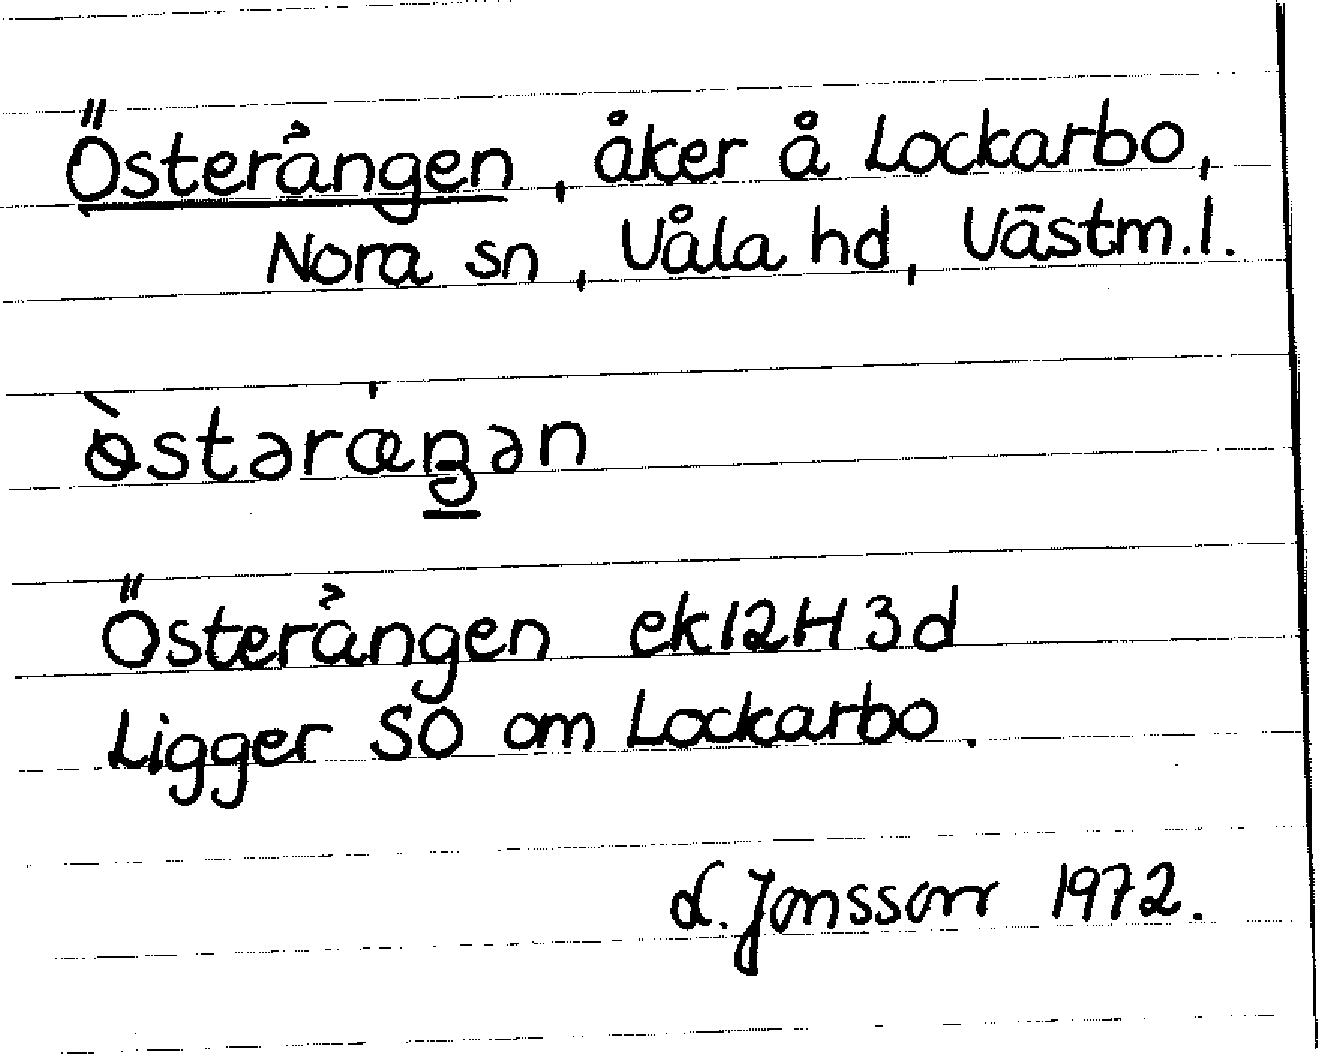 Österången, åker å Lockarbo,
Nora sn, Våla hd, Västm.l.
ö̀stərœŋən
Österången ek 12H 3d
Ligger SO om Lockarbo.
Jonsson 1972.